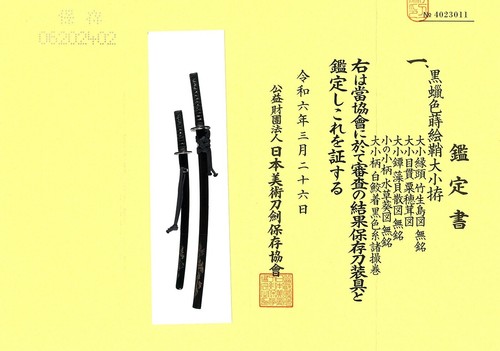 保存
06202402
№ 4023011
鑑定書
一、黒蠟色蒔絵鞘大小拵
大小縁頭 竹生島図 無銘
大小目貫 粟穂茸図
大小鐔 藻貝散図 無銘
小の小柄 水草葵図 無銘
大小柄 白鮫着黒色糸諸撮巻
右は當協會に於て審査の結果保存刀装具と
鑑定しこれを証する
令和六年三月二十六日
公益財團法人 日本美術刀劍保存協會